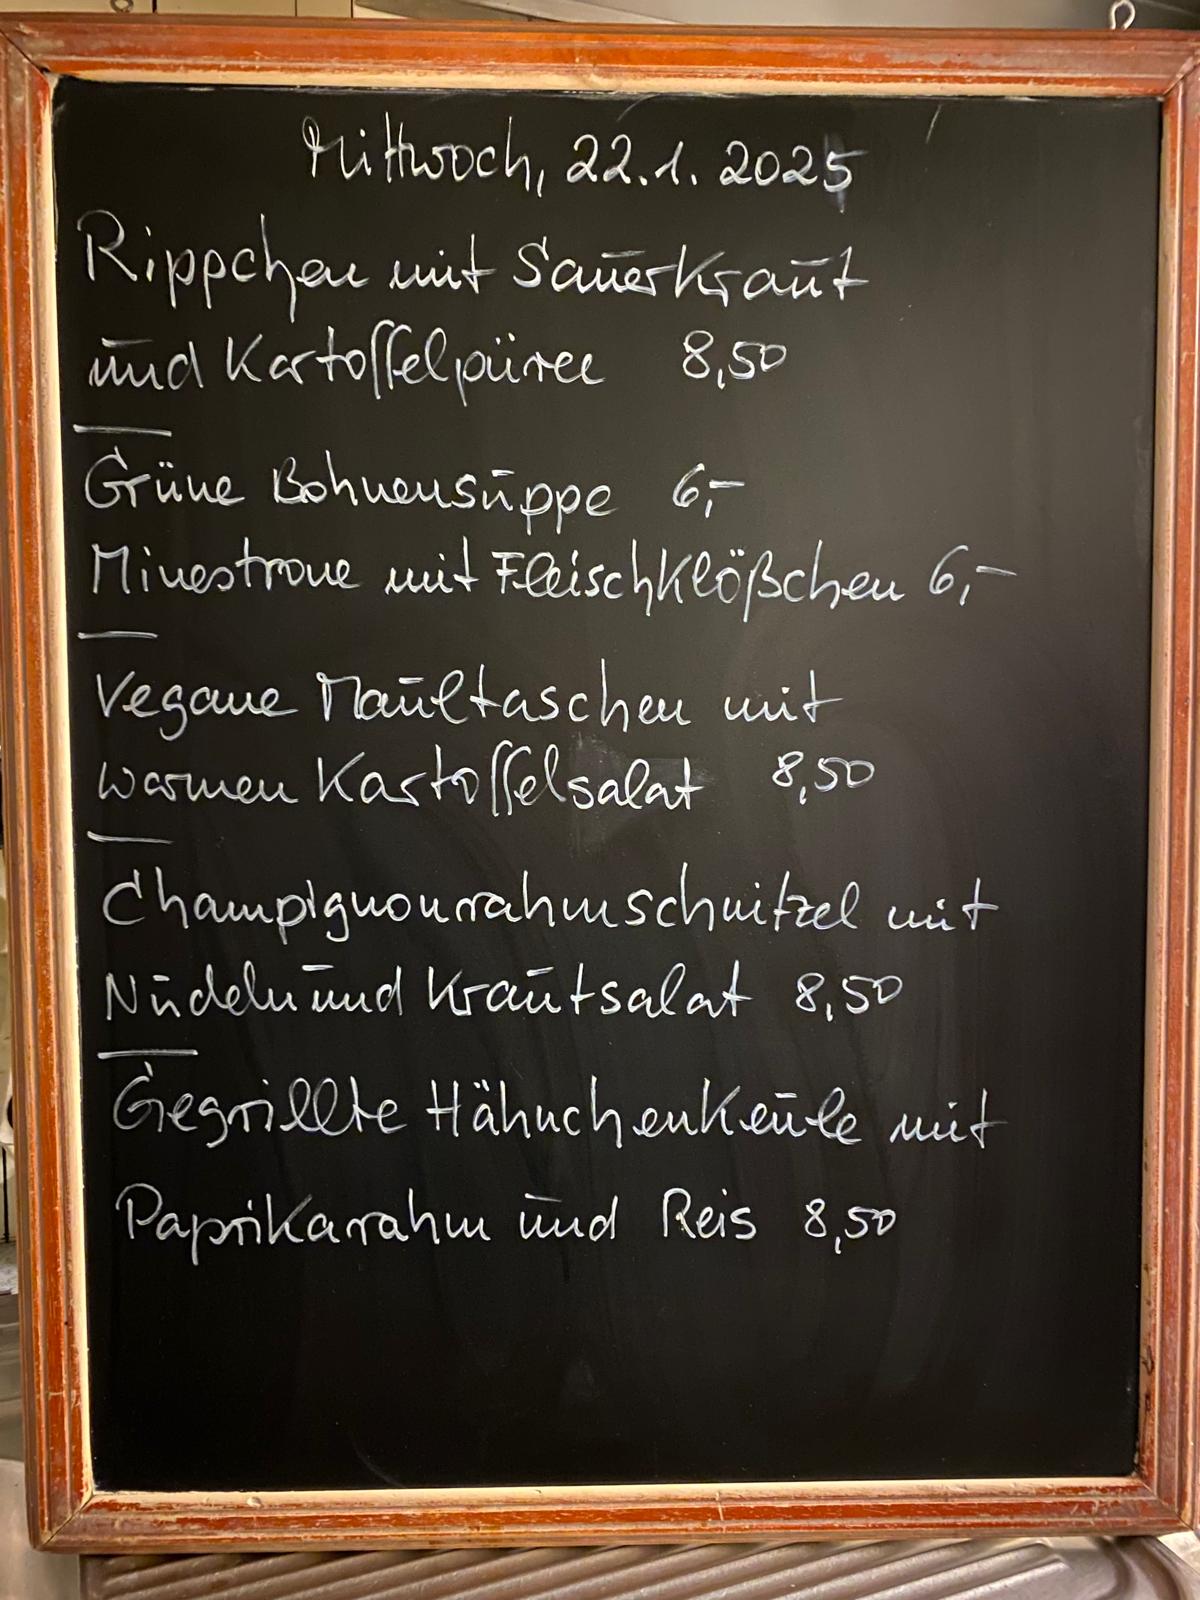 Mittwoch, 22.1.2025
Rippchen mit Sauerkraut
und Kartoffelpüree 8,50
Grüne Bohnensuppe 6,-
Minestrone mit Fleischklößchen 6,-
Vegane Maultaschen mit
warmen Kartoffelsalat 8,50
Champignonrahmschnitzel mit
Nudeln und Krautsalat 8,50
Gegrillte Hähnchenkeule mit
Paprikarahm und Reis 8,50